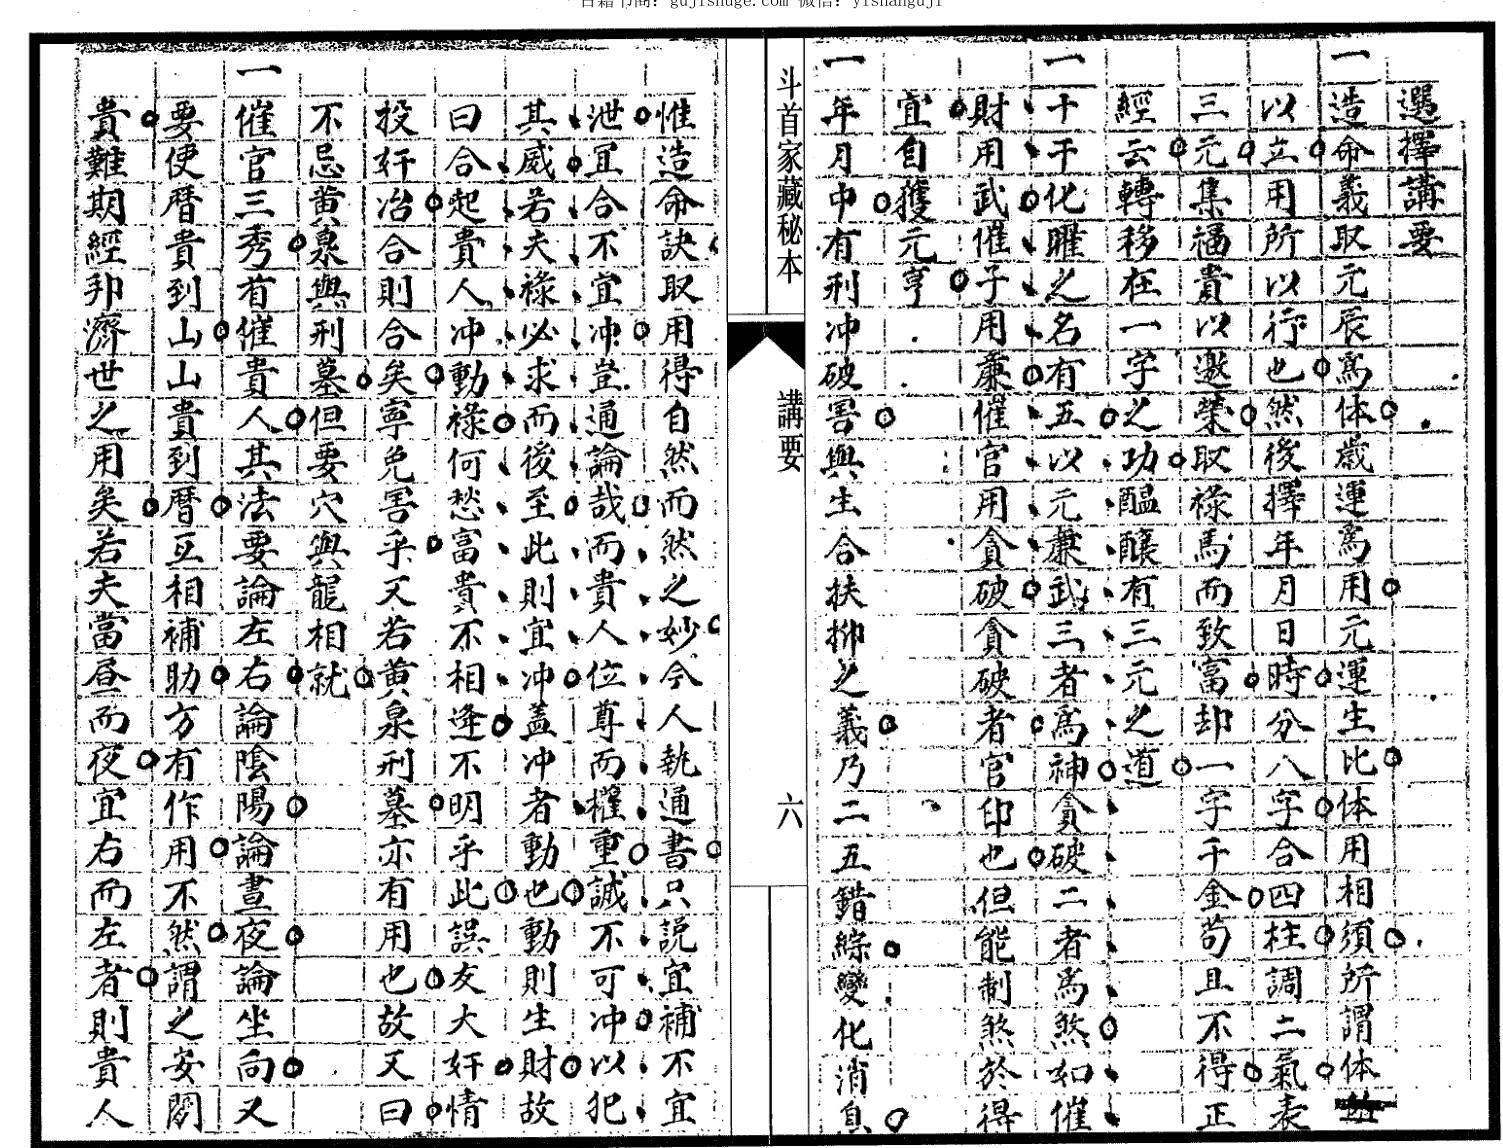 古籍书阁：gujishuge.com 微信：yishanguji
選擇講要
一造命義取元辰為体歲運為用元運生比体用相須所謂体
以立用所以行也然後擇年月日時分八字合四柱調二氣表
三元集福貴以邀榮取祿馬而致富却一字千金苟且不得正
經云轉移在一字之功醞釀有三元之道
一十干化曜之名有五以元廉武三者為神貪破二者為煞如催
財用武催子用廉催官用貪破貪破者官印也但能制煞於得
宜自獲元亨
一年月中有刑冲破害與生合扶抑之義乃二五錯綜變化消息
斗首家藏秘本
講要
六
惟造命訣取用得自然而然之妙今人執通書只説宜補不宜
泄宜合不宜冲豈通論哉而貴人位尊而權重誠不可冲以犯
其威若夫祿必求而後至此則宜冲蓋冲者動也動則生財故
曰合起貴人冲動祿何愁富貴不相逢不明乎此誤友大奸情
投奸冶合則合矣寧免害乎又若黄泉刑墓亦有用也故又曰
不忌黄泉與刑墓但要穴與龍相就
一催官三秀有催貴人其法要論左右論陰陽論晝夜論坐向又
要使曆貴到山山貴到曆互相補助方有作用不然謂之安閣
貴難期經邦濟世之用矣若夫當昼而夜宜右而左者則貴人